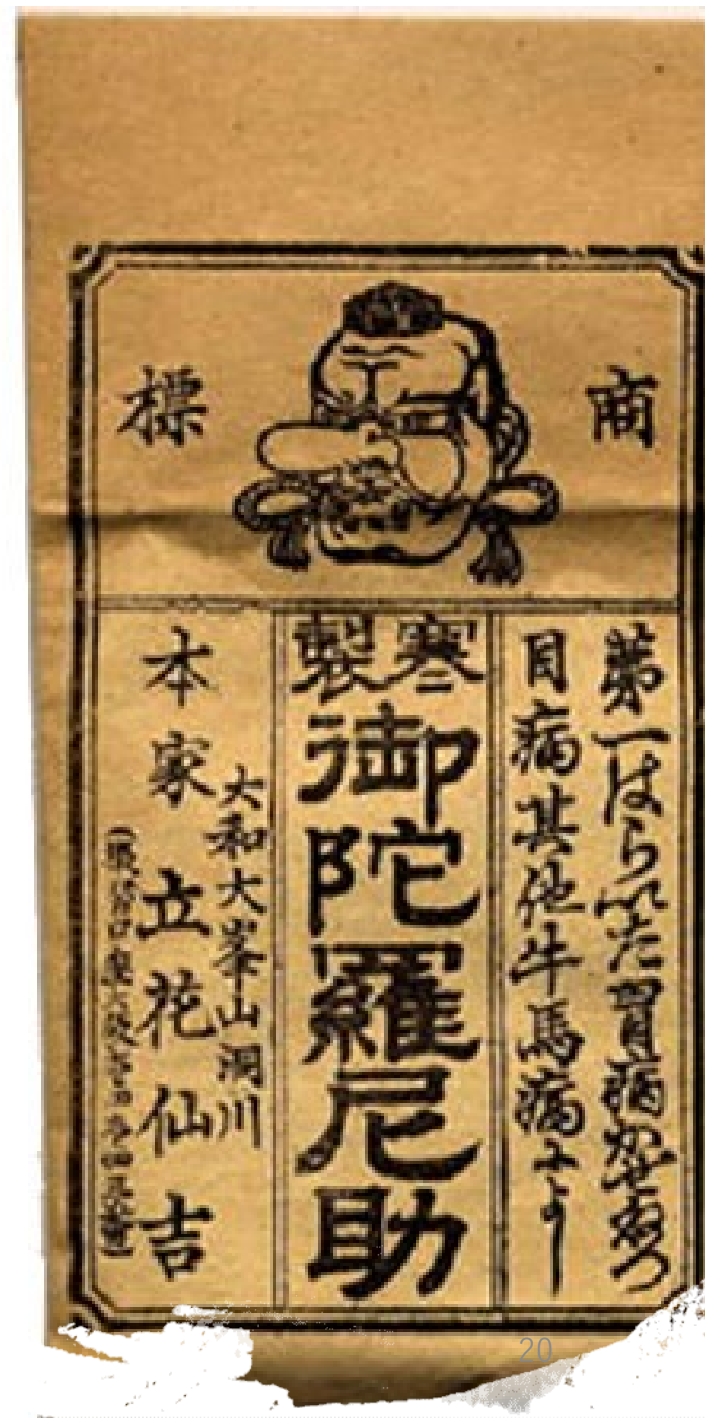 商標
第一はらいた胃病かぜねつ
目病其他牛馬病によし
寒製
御陀羅尼助
大和大峯山洞川
本家 立花仙吉
20